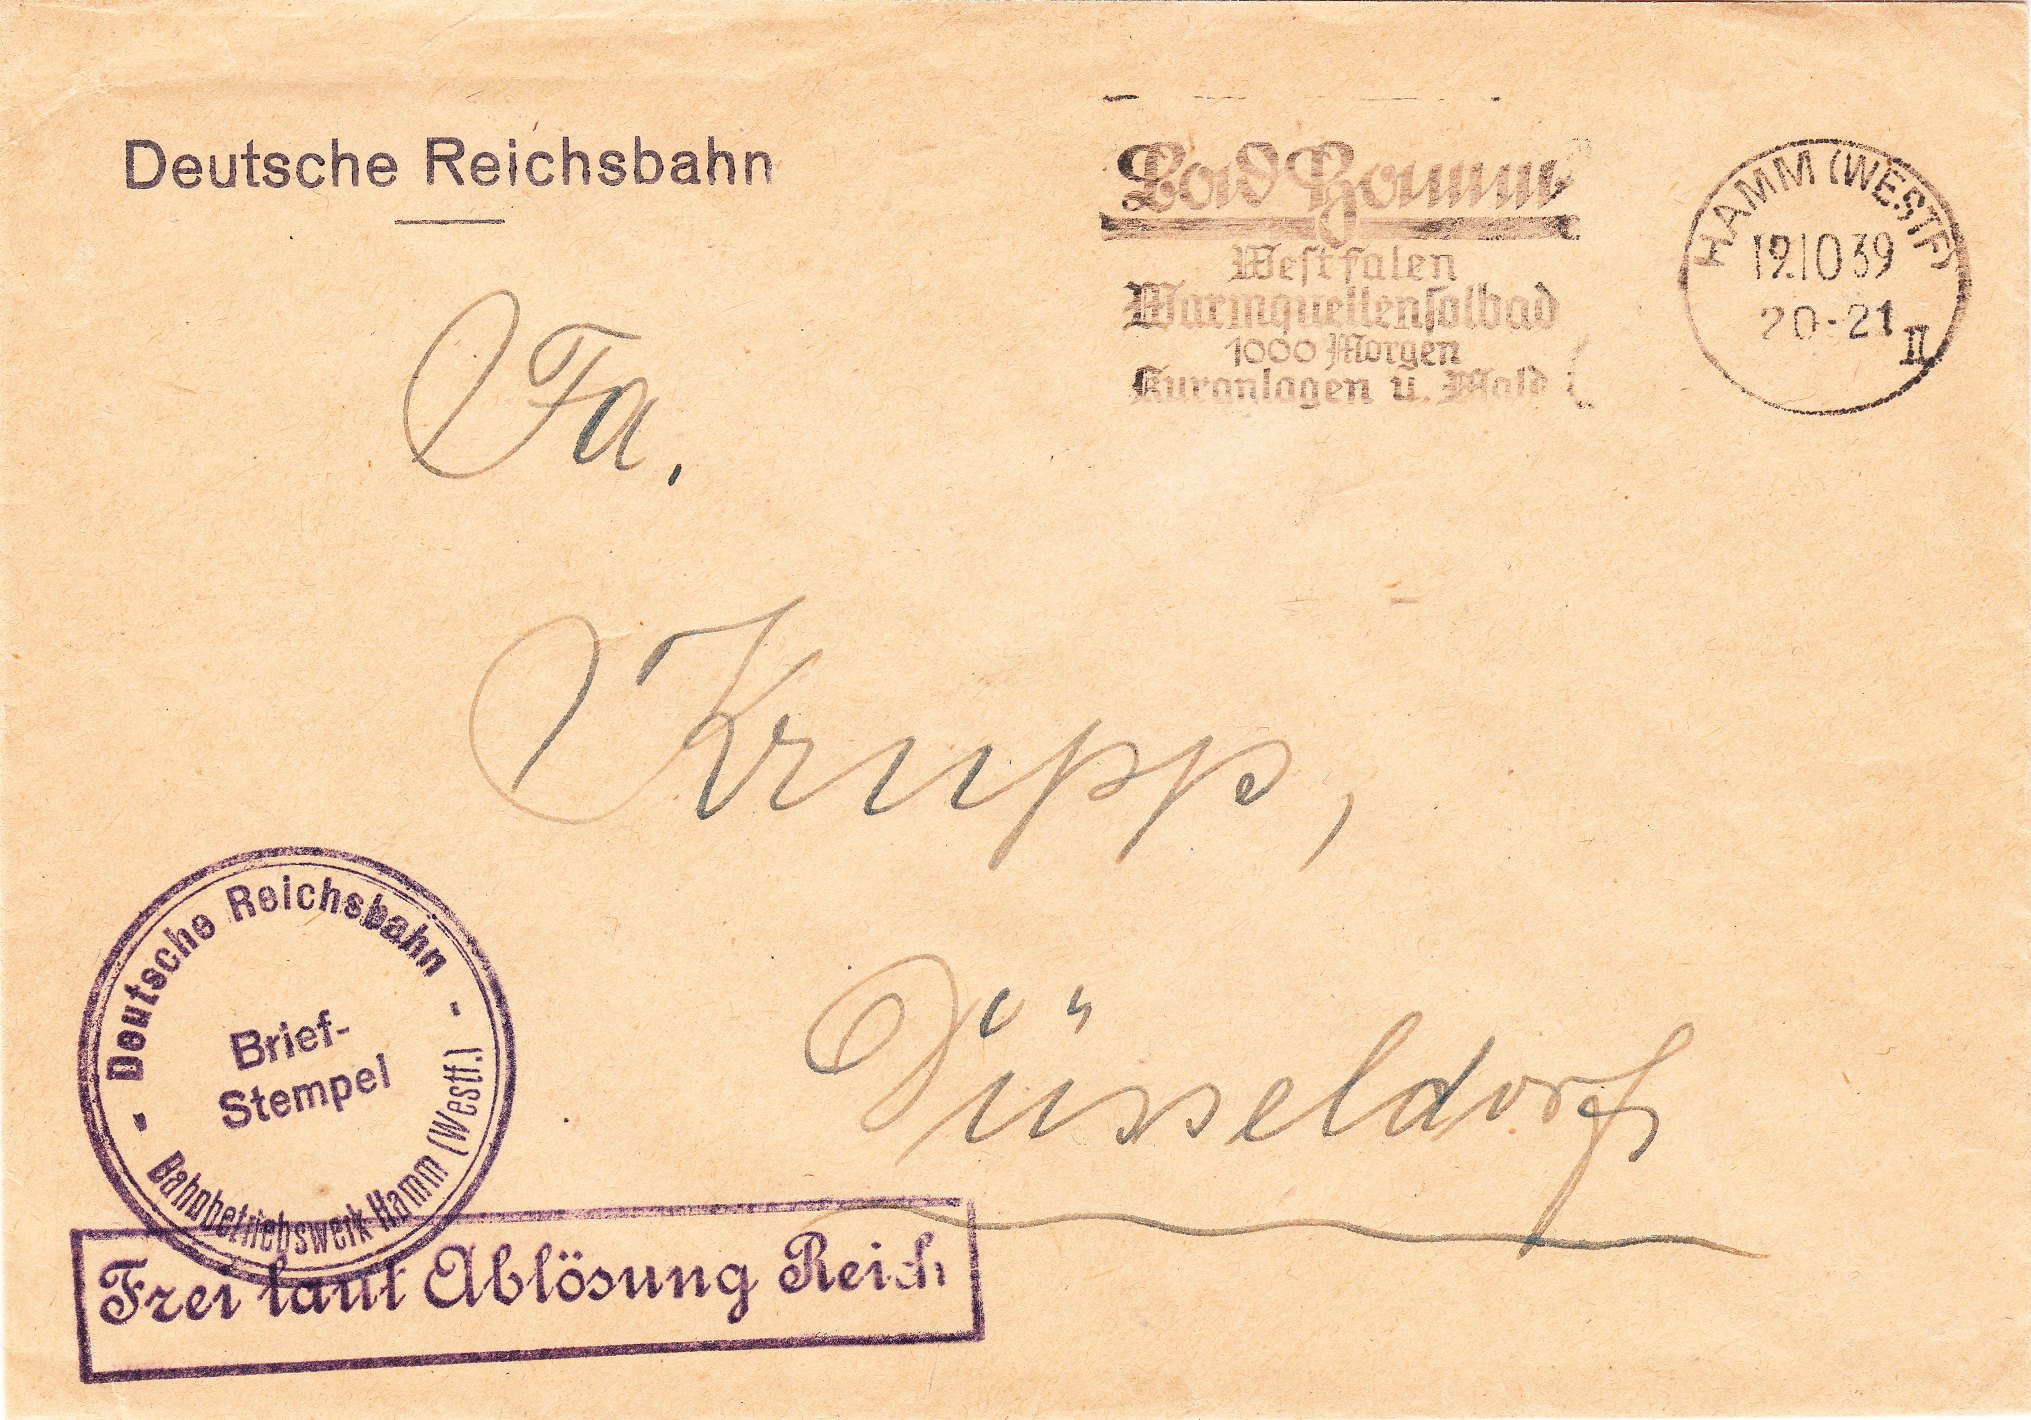 Deutsche Reichsbahn
Bad Hamm
Westfalen
Warmquellensolbad
1000 Morgen
Kuranlagen u. Wald
HAMM (WESTF)
19.10.39
20-21
II
Fa.
Krupp,
Düsseldorf
- Deutsche Reichsbahn -
Brief-
Stempel
Bahnbetriebswerk Hamm (Westf.)
Frei laut Ablösung Reich